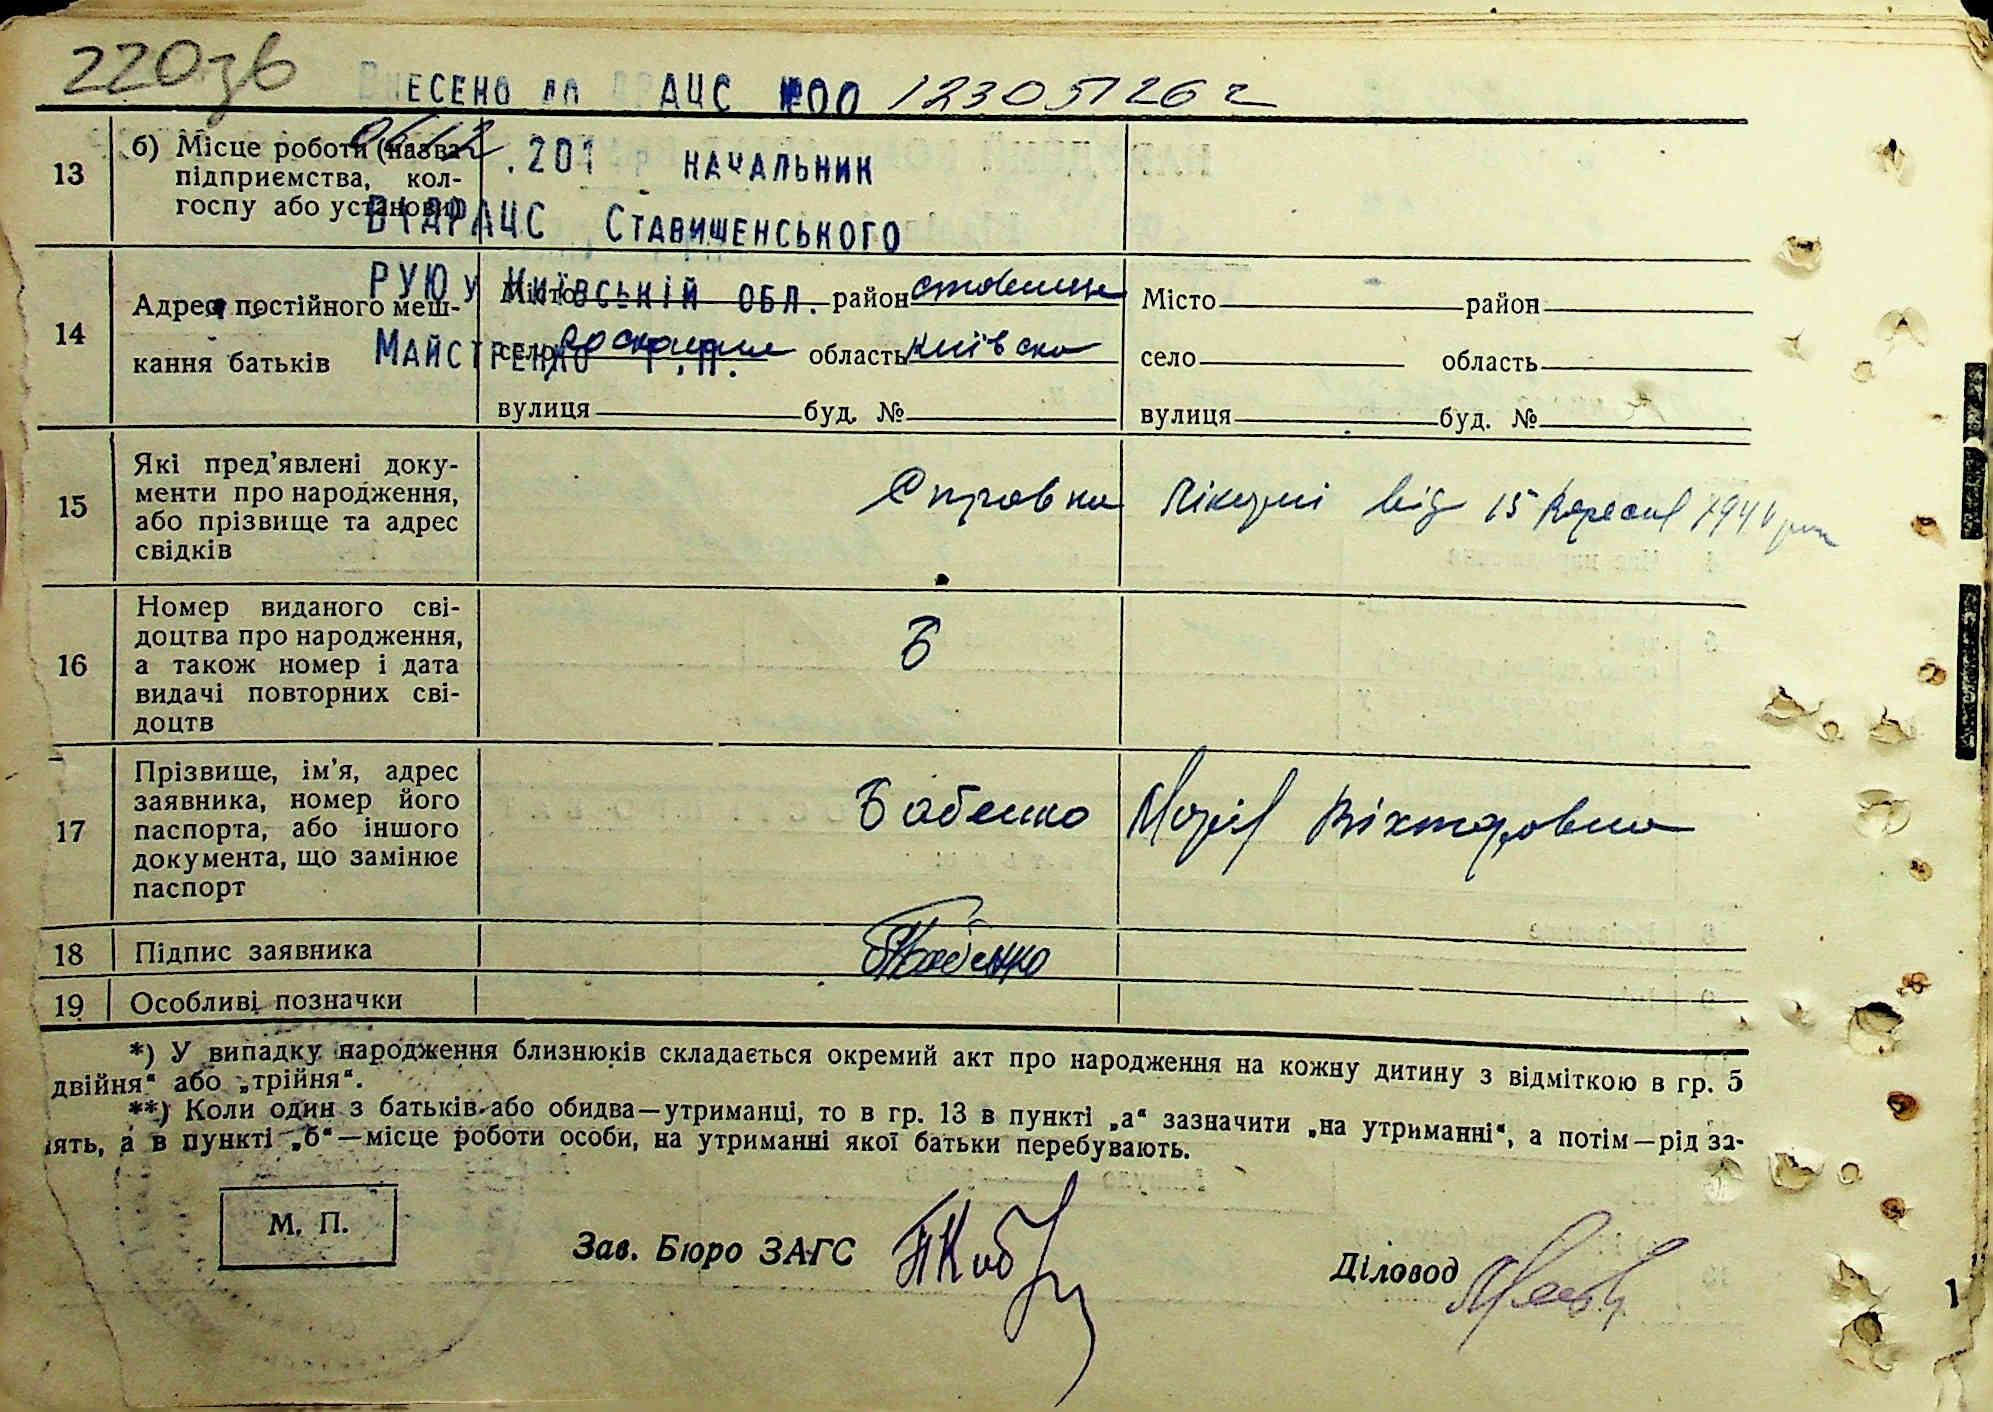 220зв
ВНЕСЕНО ДО ДРАЦС №00 1230 5126 г
13
б) Місце роботи (назва
підприємства, кол-
госпу або установи)
.201 р НАЧАЛЬНИК
ВІДРАЦС СТАВИЩЕНСЬКОГО
РУЮ у КИЇВСЬКІЙ ОБЛ.
МАЙСТРЕНКО Г.П.
14
Адреса постійного меш-
кання батьків
Місто район ставище
село область київска
вулиця буд. №
Місто район
село область
вулиця буд. №
15
Які пред’явлені доку-
менти про народження,
або прізвище та адрес
свідків
Справка Лікарні від 15 Вересня
16
Номер виданого сві-
доцтва про народження,
а також номер і дата
видачі повторних сві-
доцтв
Б
17
Прізвище, ім’я, адрес
заявника, номер його
паспорта, або іншого
документа, що замінює
паспорт
Бабенко Марія Вікторовна
18 Підпис заявника
Бабенко
19 Особливі позначки
*) У випадку народження близнюків складається окремий акт про народження на кожну дитину з відміткою в гр. 5
двійня“ або „трійня“.
**) Коли один з батьків або обидва—утриманці, то в гр. 13 в пункті „а“ зазначити „на утриманні“, а потім—рід за-
ять, а в пункті „б“—місце роботи особи, на утриманні якої батьки перебувають.
М. П.
Зав. Бюро ЗАГС
Діловод
1